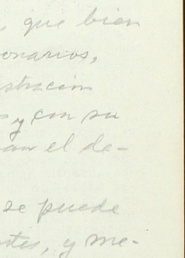 que bien
onarios,
stracion
y con su
an el de-
se puede
ntes, y me-